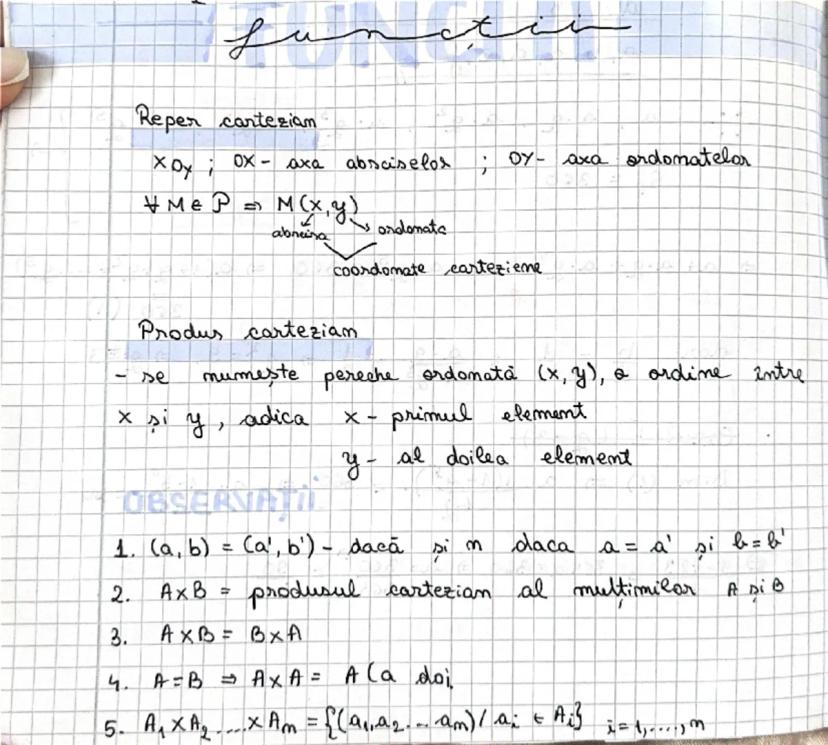 funcții
Reper cartezian
XOY ; OX - axa absciselor ; OY - axa ordonatelor
∀ M ∈ P ⇒ M(x,y)
abscisa ordonata
coordonate carteziene
Produs cartezian
- se numește pereche ordonată (x,y), o ordine între
x și y, adica x - primul element
y - al doilea element
OBSERVAȚII
1. (a,b) = (a',b') - dacă și n daca a = a' și b = b'
2. A×B = produsul cartezian al mulțimilor A și B
3. A×B = B×A
4. A=B ⇒ A×A = A (a doi
5. A₁×A₂....×Aₙ = {(a₁,a₂...aₙ)/ aᵢ ∈ Aᵢ} i=1,....,n